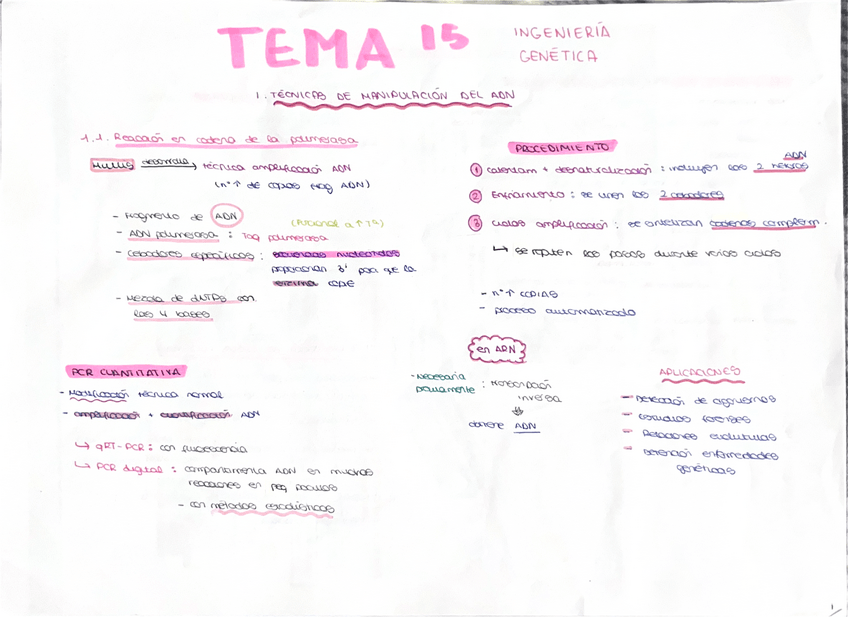 TEMA 15
INGENIERÍA
GENÉTICA
1. TÉCNICAS DE MANIPULACIÓN DEL ADN
1.1. Reacción en cadena de la polimerasa
Mullis desarrolla técnica amplificación ADN
(nº ↑ de copias frag ADN)
- Fragmento de ADN
(funcional a ↑ Tª)
- ADN polimerasa : Taq polimerasa
- Cebadores específicos : secuencias nucleótidos
proporcionan 3' para que la
enzima copie
- Mezcla de dNTPs con
las 4 bases
PROCEDIMIENTO
ADN
1 Calentam + desnaturalización : incluyen las 2 hebras
2 Enfriamiento : se unen los 2 cebadores
3 Ciclos amplificación : se sintetizan cadenas complem.
↳ se repiten los pasos durante varios ciclos
- nº ↑ COPIAS
- proceso automatizado
PCR CUANTITATIVA
- Modificación técnica normal
- amplificación + cuantificación ADN
↳ qRT-PCR : con fluorescencia
↳ PCR digital : compartimenta ADN en muchas
reacciones en peq
- con métodos estadísticos
en ARN
- Necesaria
previamente : transcripción
inversa
⇓
obtiene ADN
APLICACIONES
- Detección de organismos
- Estudios forenses
- Relaciones evolutivas
- Detección enfermedades
genéticas
1